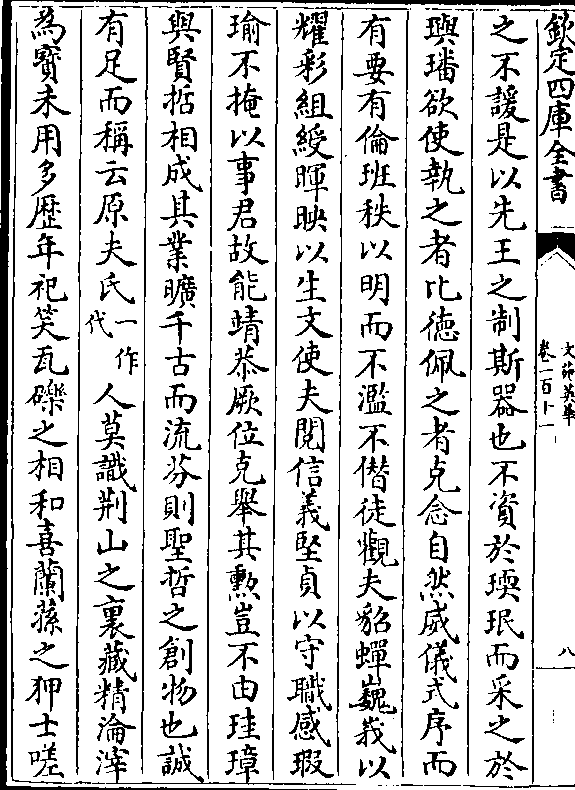 欽定四庫全書
文苑英華
卷一百十一
八
之不諼是以先王之制斯器也不資於瓀珉而采之於
璵璠欲使執之者比德佩之者克念自然威儀式序而
有要有倫班秩以明而不濫不僭徒觀夫貂蟬巍峩以
耀彩組綬暉映以生文使夫閱信義堅貞以守職感瑕
瑜不掩以事君故能靖恭厥位克舉其勲豈不由珪璋
與賢哲相成其業曠千古而流芬則聖哲之創物也誠
有足而稱云原夫氏一作代人莫識荆山之裏藏精淪滓
為寳未用多歴年祀笑瓦礫之相和喜蘭蓀之狎士嗟